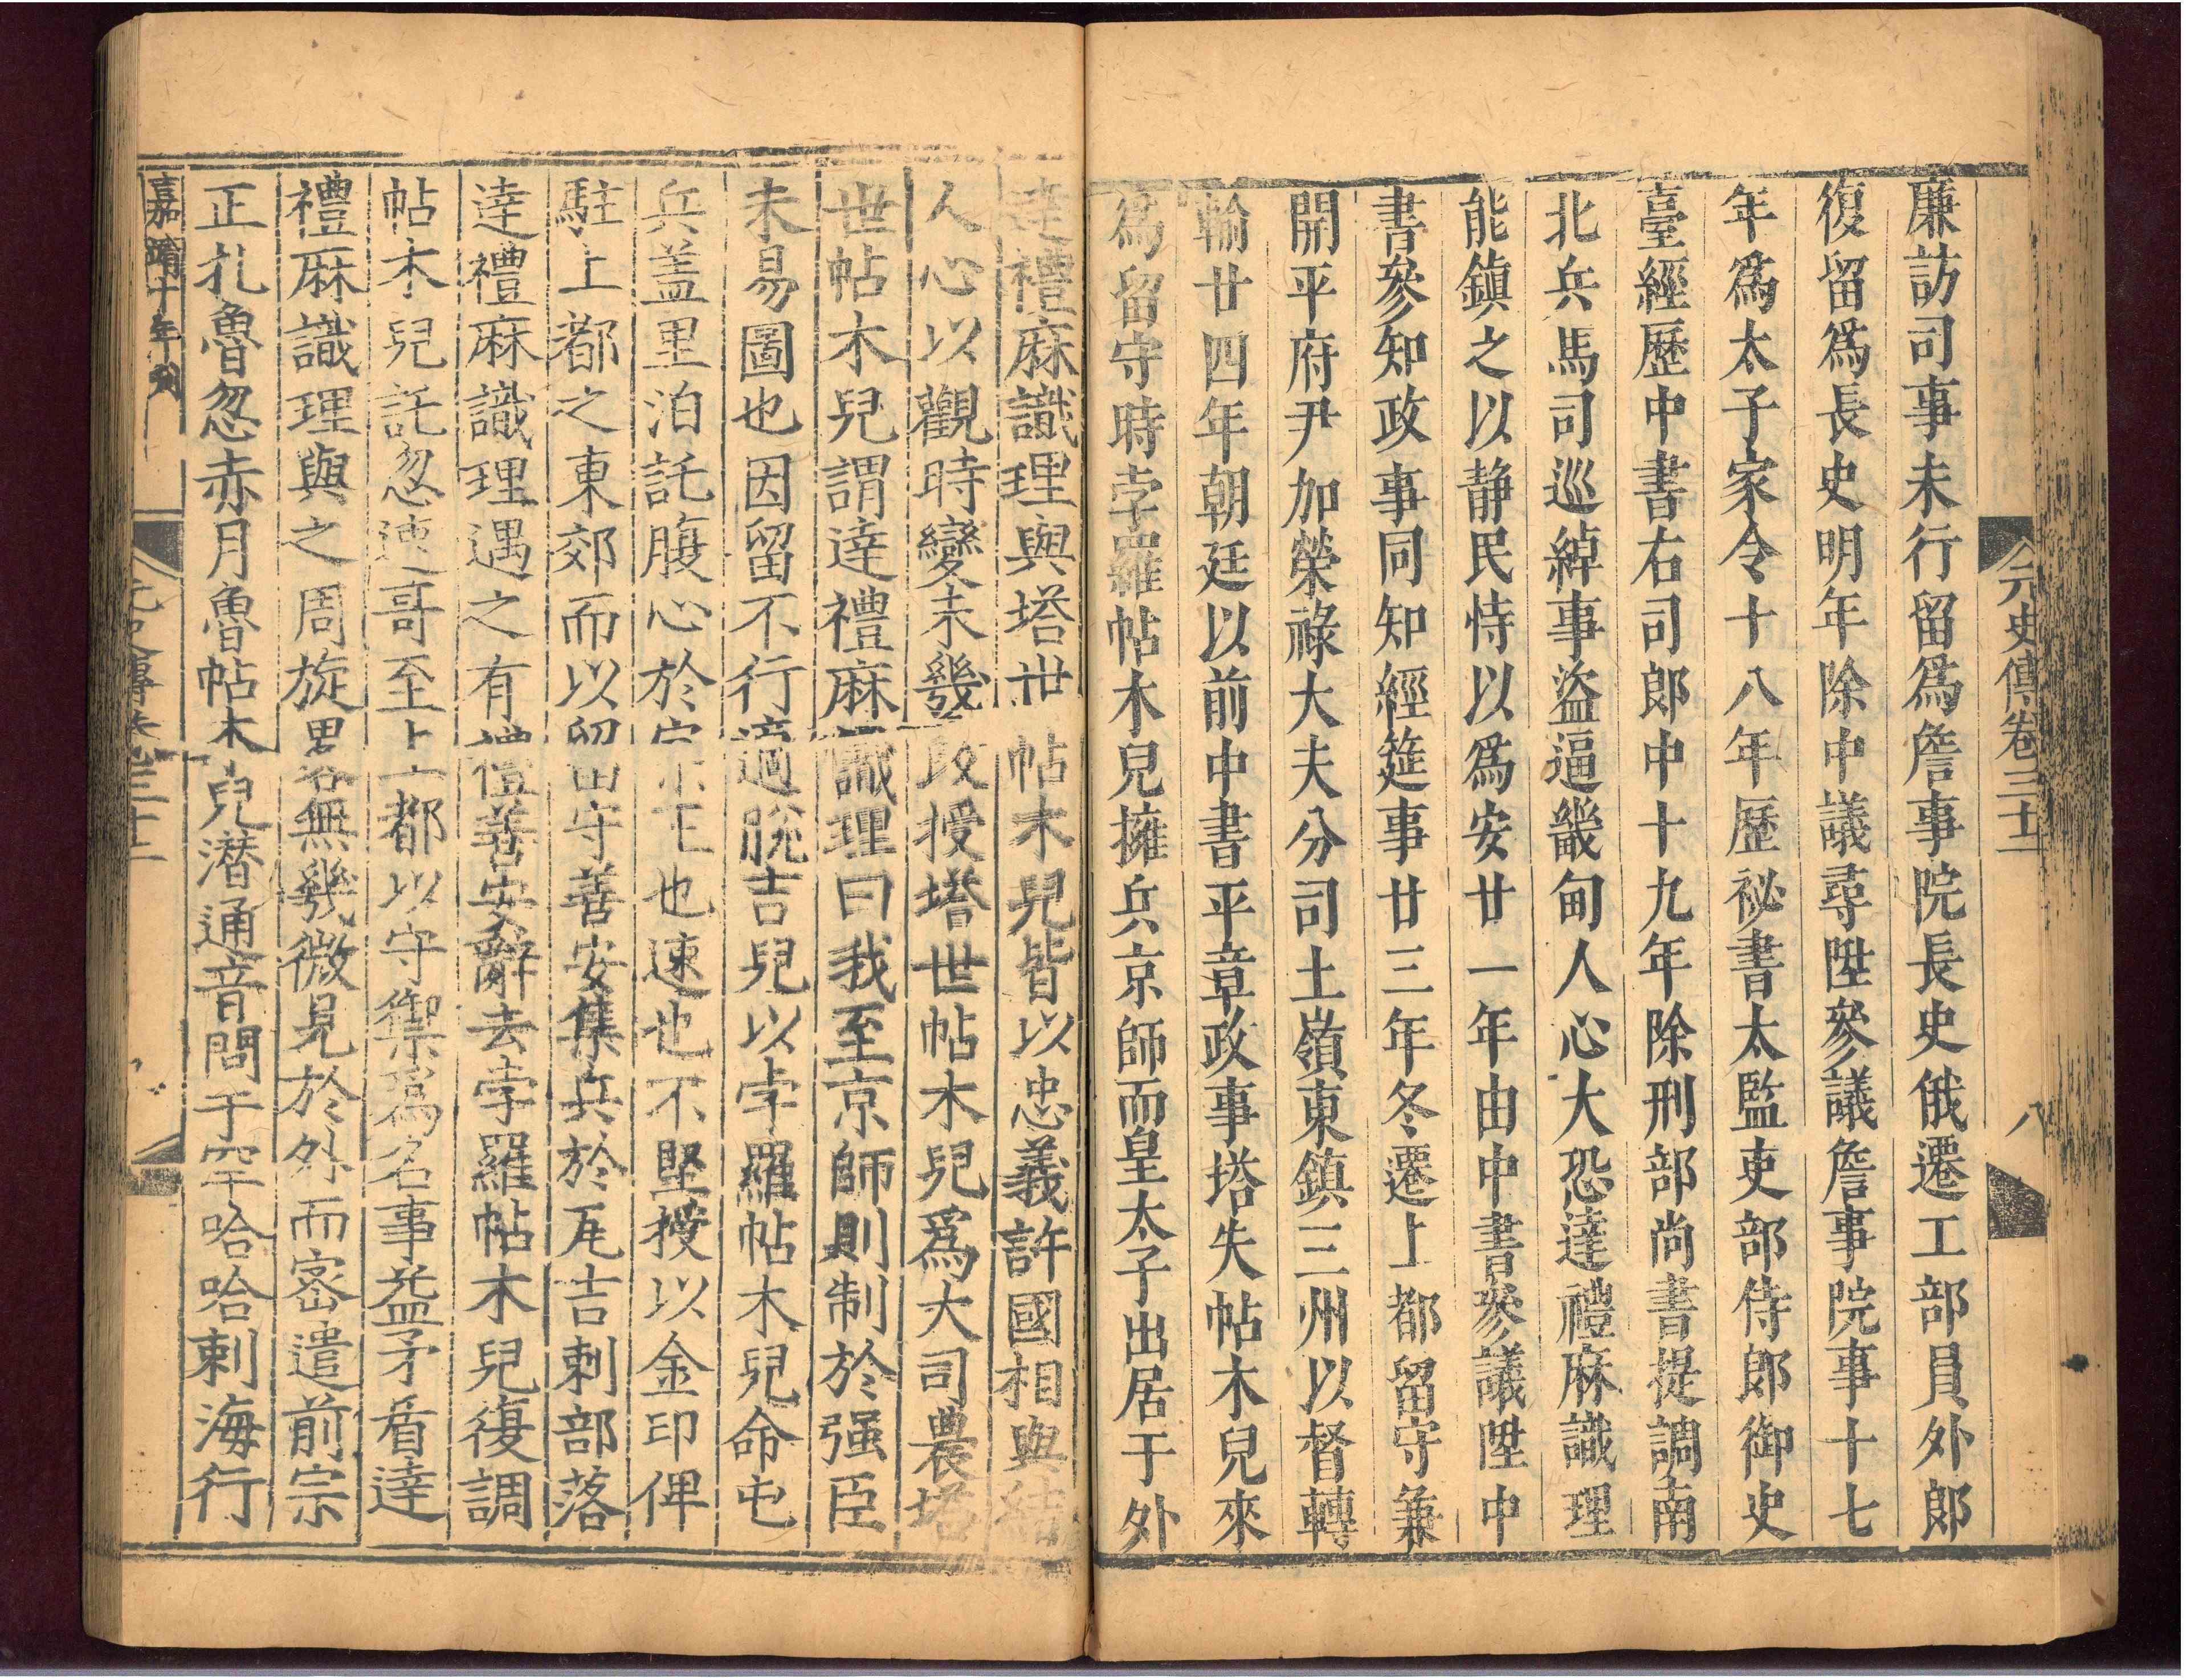 元史傳卷三十二
八
廉訪司事未行留爲詹事院長史俄遷工部員外郎
復留爲長史明年除中議尋陞參議詹事院事十七
年爲太子家令十八年歷祕書太監吏部侍郎御史
臺經歷中書右司郎中十九年除刑部尚書提調南
北兵馬司巡綽事盜逼畿甸人心大恐達禮麻識理
能鎮之以静民恃以爲安廿一年由中書參議陞中
書參知政事同知經筵事廿三年冬遷上都留守兼
開平府尹加榮祿大夫分司土嶺東鎮三州以督轉
輸廿四年朝廷以前中書平章政事塔失帖木兒來
爲留守時孛羅帖木兒擁兵京師而皇太子出居于外
達禮麻識理與塔世帖木兒皆以忠義許國相與結
人心以觀時變未幾改授塔世帖木兒爲大司農塔
世帖木兒謂達禮麻識理曰我至京師則制於强臣
未易圖也因留不行適脱吉兒以孛羅帖木兒命屯
兵盖里泊託腹心於宗王也速也不堅授以金印俾
駐上都之東郊而以留守善安集兵於瓦吉剌部落
達禮麻識理遇之有禮善安辭去孛羅帖木兒復調
帖木兒託忽速哥至上都以守禦爲名事益矛盾達
禮麻識理與之周旋畧無幾微見於外而密遣前宗
正扎魯忽赤月魯帖木兒潜通音問于罕哈哈剌海行
嘉靖十年